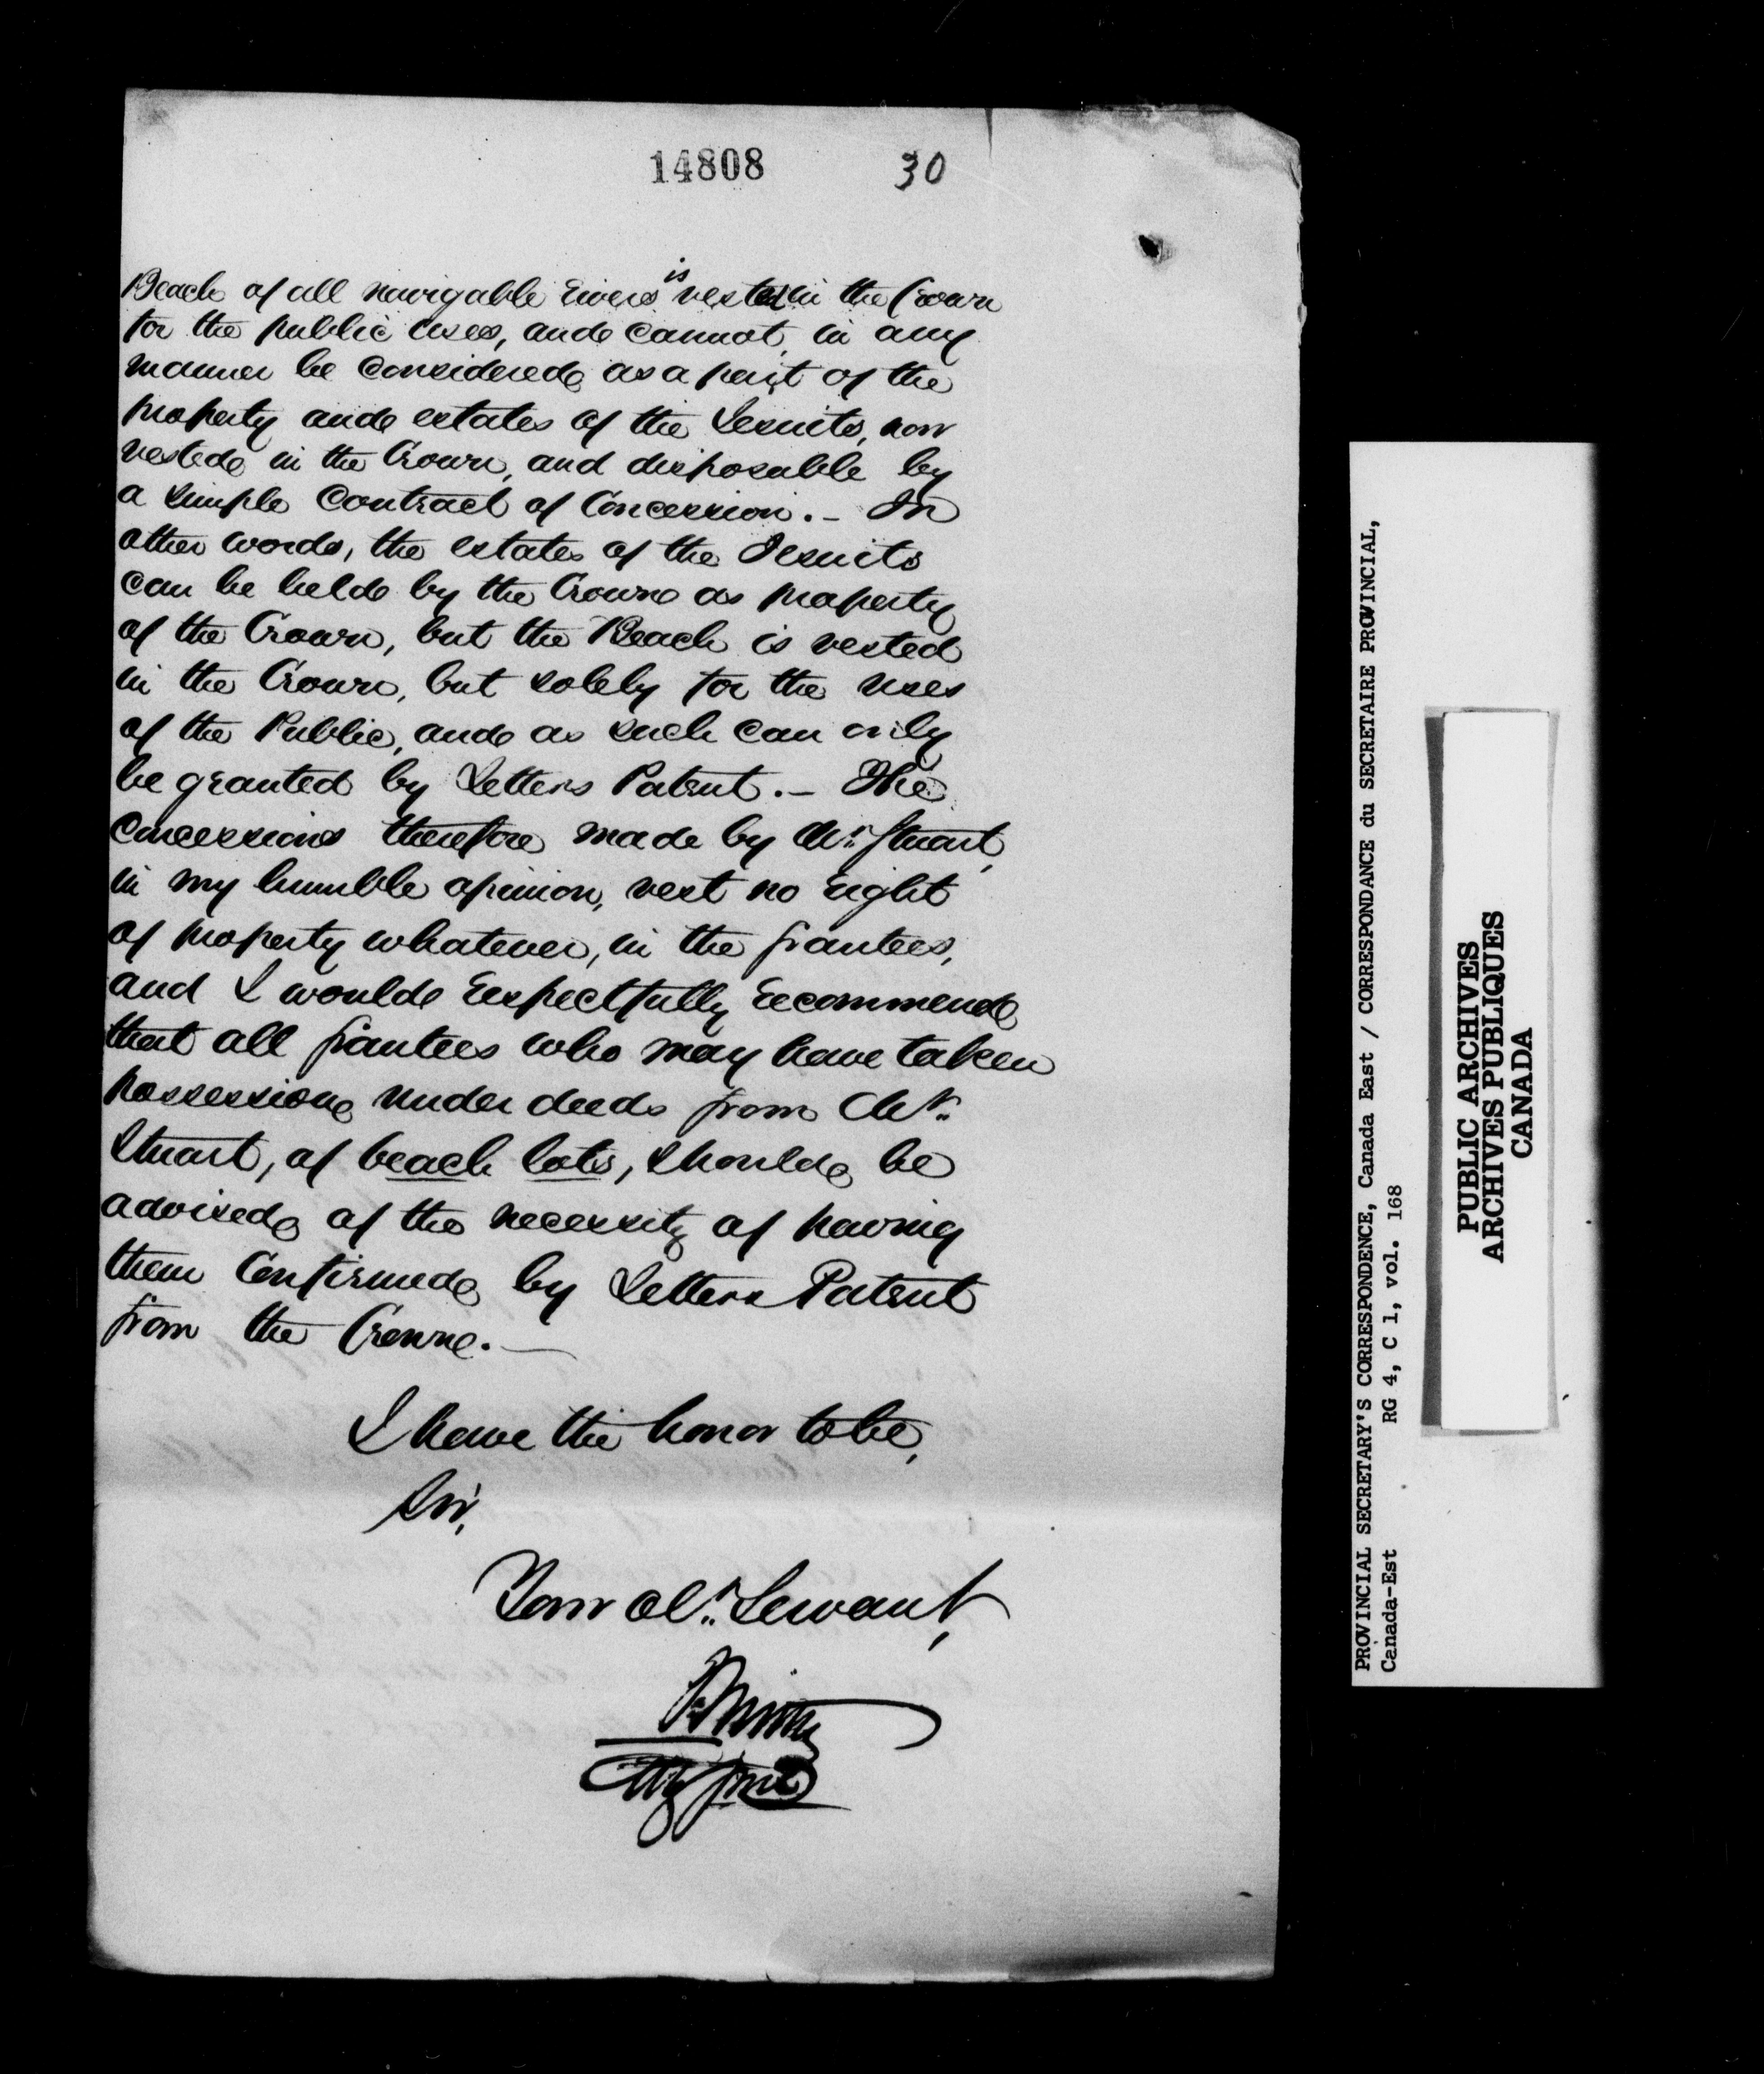 14808 30
Beach of all navigable rivers is vested in the Crown
for the public uses, and cannot, in any
manner be considered as a part of the
property and estates of the Jesuits, now
vested in the Crown, and disposable by
a simple Contract of Concession. - In
other words, the estates of the Jesuits
can be held by the Crown as property
of the Crown, but the Beach is vested
in the Crown, but solely for the uses
of the Public, and as such can only
be granted by Letters Patent. - The
concessions therefore made by Mr. Stuart,
in my humble opinion, vest no right
of property whatever, in the grantees,
and I would respectfully recommend
that all grantees who may have taken
possession under deeds from Mr.
Stuart, of beach lots, should be
advised of the necessity of having
them Confirmed by Letters Patent
from the Crown. -
I have the honor to be,
Sir,
Your Ob. Servant,
PROVINCIAL SECRETARY'S CORRESPONDENCE, Canada East / CORRESPONDANCE du SECRETAIRE PROVINCIAL,
Canada-Est RG 4, C 1, vol. 168
PUBLIC ARCHIVES
ARCHIVES PUBLIQUES
CANADA